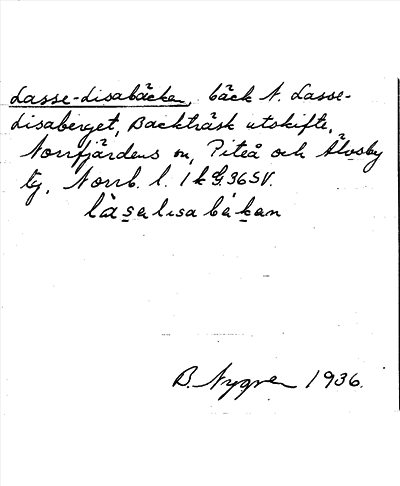 Lasse-Lisabäcken, bäck N. Lasse-
Lisaberget, Backträsk utskifte,
Norrfjärdens sn, Piteå och Älvsby
tg, Norrb. l. 1 k G. 36 SV.
làsalisabäkan
B. Nygren 1936.